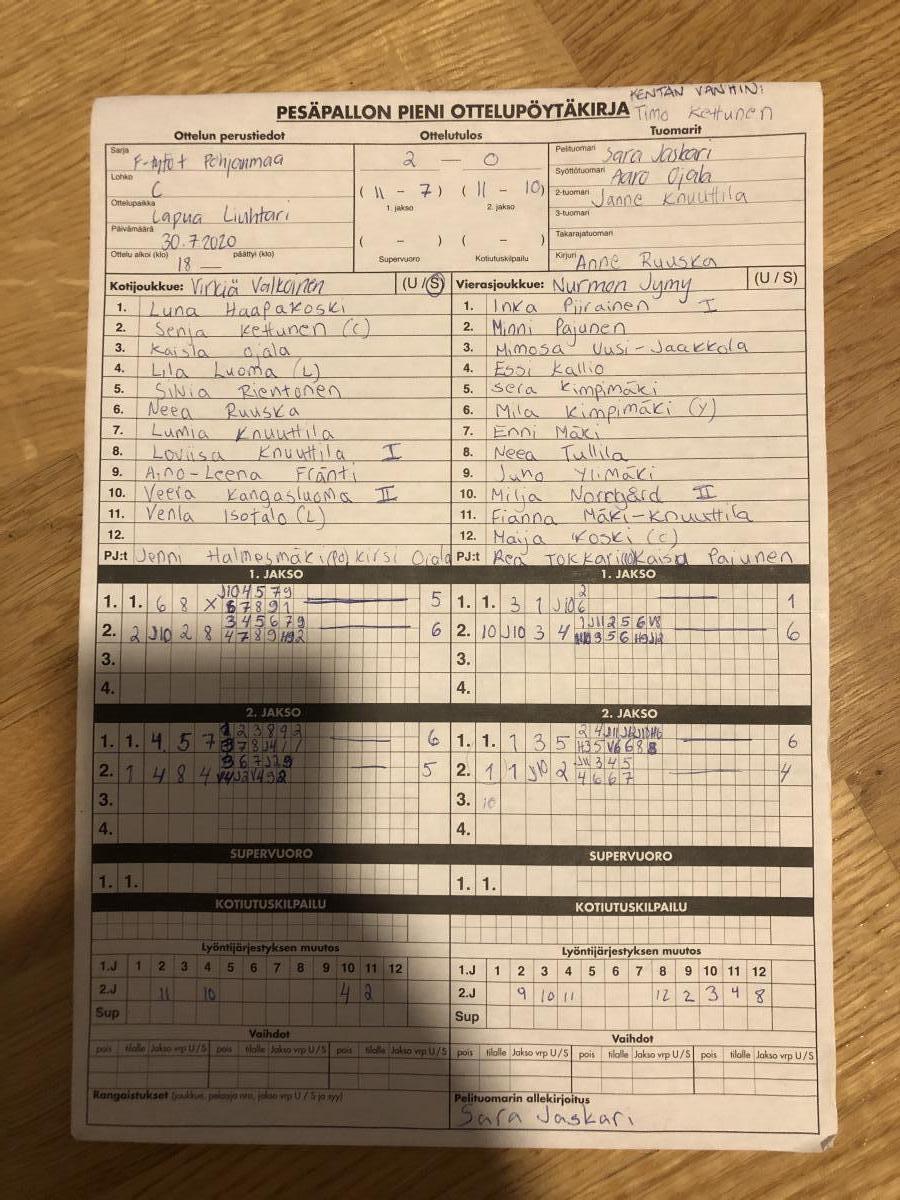 KENTÄN VANHIN:
PESÄPALLON PIENI OTTELUPÖYTÄKIRJA Timo Kettunen
Ottelun perustiedot Ottelutulos Tuomarit
Sarja F-tytöt Pohjanmaa
Lohko C
Ottelupaikka Lapua Liuhtari
Päivämäärä 30.7.2020
Ottelu alkoi (klo) 18 — päättyi (klo)
2 — 0
( 11 - 7 ) ( 11 - 10 )
1. jakso 2. jakso
( - ) ( - )
Supervuoro Kotiutuskilpailu
Pelituomari Sara Jaskari
Syöttötuomari Aaro Ojala
2-tuomari Janne Knuuttila
3-tuomari
Takarajatuomari
Kirjuri Anne Ruuska
Kotijoukkue: Virkiä Valkoinen (U / S)
1. Luna Haapakoski
2. Senja Kettunen (C)
3. Kaisla Ojala
4. Lila Luoma (L)
5. Silvia Rientonen
6. Neea Ruuska
7. Lumia Knuuttila
8. Loviisa Knuuttila I
9. Aino-Leena Fränti
10. Veera Kangasluoma II
11. Venla Isotalo (L)
12.
PJ:t Jenni Halmesmäki (po) Kirsi Ojala
Vierasjoukkue: Nurmon Jymy (U / S)
1. Inka Piirainen I
2. Minni Pajunen
3. Mimosa Uusi-Jaakkola
4. Essi Kallio
5. Sera Kimpimäki
6. Mila Kimpimäki (Y)
7. Enni Mäki
8. Neea Tullila
9. Juno Ylimäki
10. Milja Norrgård II
11. Fianna Mäki-Knuuttila
12. Maija Koski (C)
PJ:t Kaisa Pajunen
1. JAKSO
1. 1. 6 8 X 5
2. 2 J10 2 8 6
3.
4.
1. JAKSO
1. 1. 3 1 J10 1
2. 10 J10 3 4 6
3.
4.
2. JAKSO
1. 1. 4 5 7 6
2. 1 4 8 4 5
3.
4.
2. JAKSO
1. 1. 1 3 5 6
2. 1 1 J10 2 4
3. 10
4.
SUPERVUORO
1. 1.
SUPERVUORO
1. 1.
KOTIUTUSKILPAILU
KOTIUTUSKILPAILU
Lyöntijärjestyksen muutos
1.J 1 2 3 4 5 6 7 8 9 10 11 12
2.J 11 10 4 2
Sup
Lyöntijärjestyksen muutos
1.J 1 2 3 4 5 6 7 8 9 10 11 12
2.J 9 10 11 12 2 3 4 8
Sup
Vaihdot
pois tilalle Jakso vrp U / S pois tilalle Jakso vrp U / S pois tilalle Jakso vrp U / S
Vaihdot
pois tilalle Jakso vrp U / S pois tilalle Jakso vrp U / S pois tilalle Jakso vrp U / S
Rangaistukset (joukkue, pelaaja nro, jakso vrp U / S ja syy)
Pelituomarin allekirjoitus
Sara Jaskari